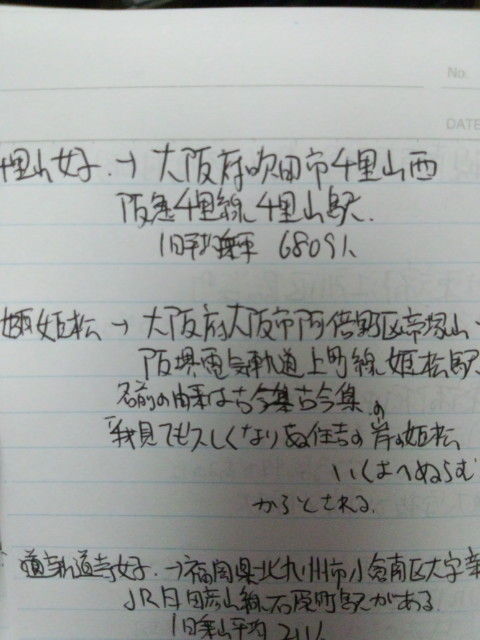 No.
DATE
千里山女子 → 大阪府吹田市千里山西
阪急千里線 千里山駅.
1日平均乗車 6809人
姫松 → 大阪府大阪市阿倍野区帝塚山
阪堺電気軌道上町線 姫松駅
名前の由来は古今集古今集の
「我見ても久しくなりぬ住吉の岸の姫松
いくよへぬらむ
からとされる.
→福岡県北九州市小倉南区大字
JR日田彦山線石原町駅がある.
1日乗車平均 211人